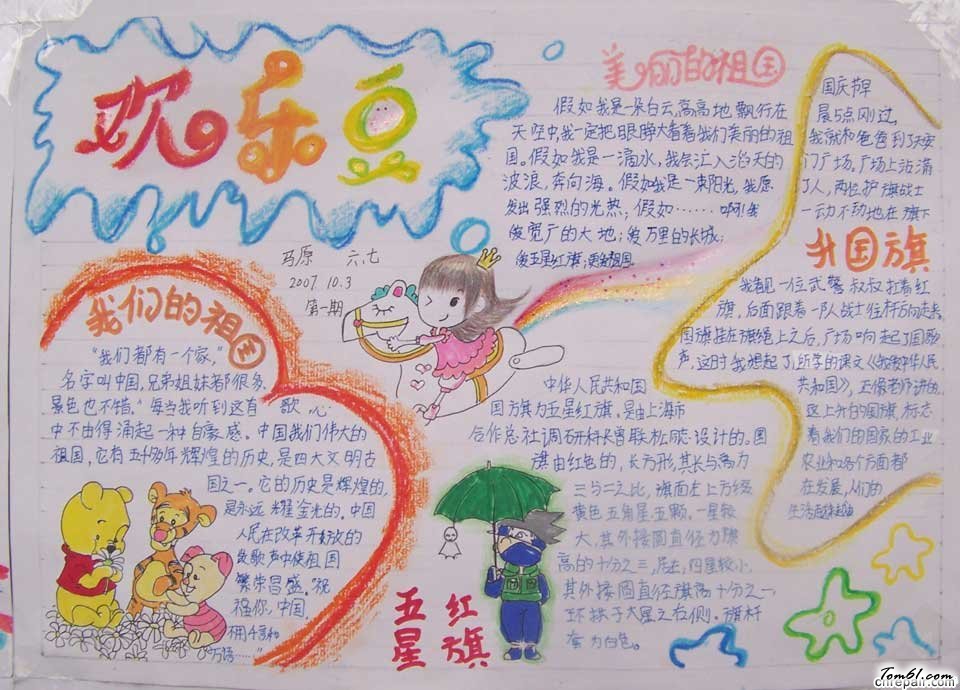 欢乐豆
马原 六.七
2007.10.3
第一期
我们的祖国
"我们都有一个家,"
名字叫中国,兄弟姐妹都很多,
景色也不错。"每当我听到这首歌,心
中不由得涌起一种自豪感。中国我们伟大的
祖国,它有五千多年辉煌的历史,是四大文明古
国之一。它的历史是辉煌的,
是永远耀金光的。中国
人民在改革开放的
歌声中使祖国
繁荣昌盛。祝
福你,中国.
用千言和
万语……"
美丽的祖国
假如我是一朵白云,高高地飘行在
天空中,我一定把眼睁大看着我们美丽的祖
国。假如我是一滴水,我会汇入滔天的
波浪,奔向海。假如我是一束阳光,我愿
发出强烈的光热;假如……啊!我
爱宽广的大地;爱万里的长城;
爱五星红旗;更爱祖国.
升国旗
国庆节早
晨5点刚过,
我就和爸爸到了天安
门广场。广场上站满
了人,两位护旗战士
一动不动地在旗下
我看见一位武警叔叔扛着红
旗,后面跟着一队战士往杆方向走来,
国旗挂在旗绳上之后,广场响起了国歌
声,这时我想起了所学的课文《我爱中华人民
共和国》,正像老师讲的
这上升的国旗标志
着我们的国家的工业
农业和各个方面都
在发展,人们的
生活越来越
五星红旗
中华人民共和国
国旗为五星红旗,是由上海市
合作总社调研科长曾联松同志设计的。国
旗由红色的,长方形,其长与高为
三与二之比,旗面左上方缀
黄色五角星五颗。一星较
大,其外接圆直径为旗
高的十分之三,居左,四星较小,
其外接圆直径旗高十分之一,
环拱于大星之右侧。旗杆
套为白色。
Tom61.com
chrepair.com